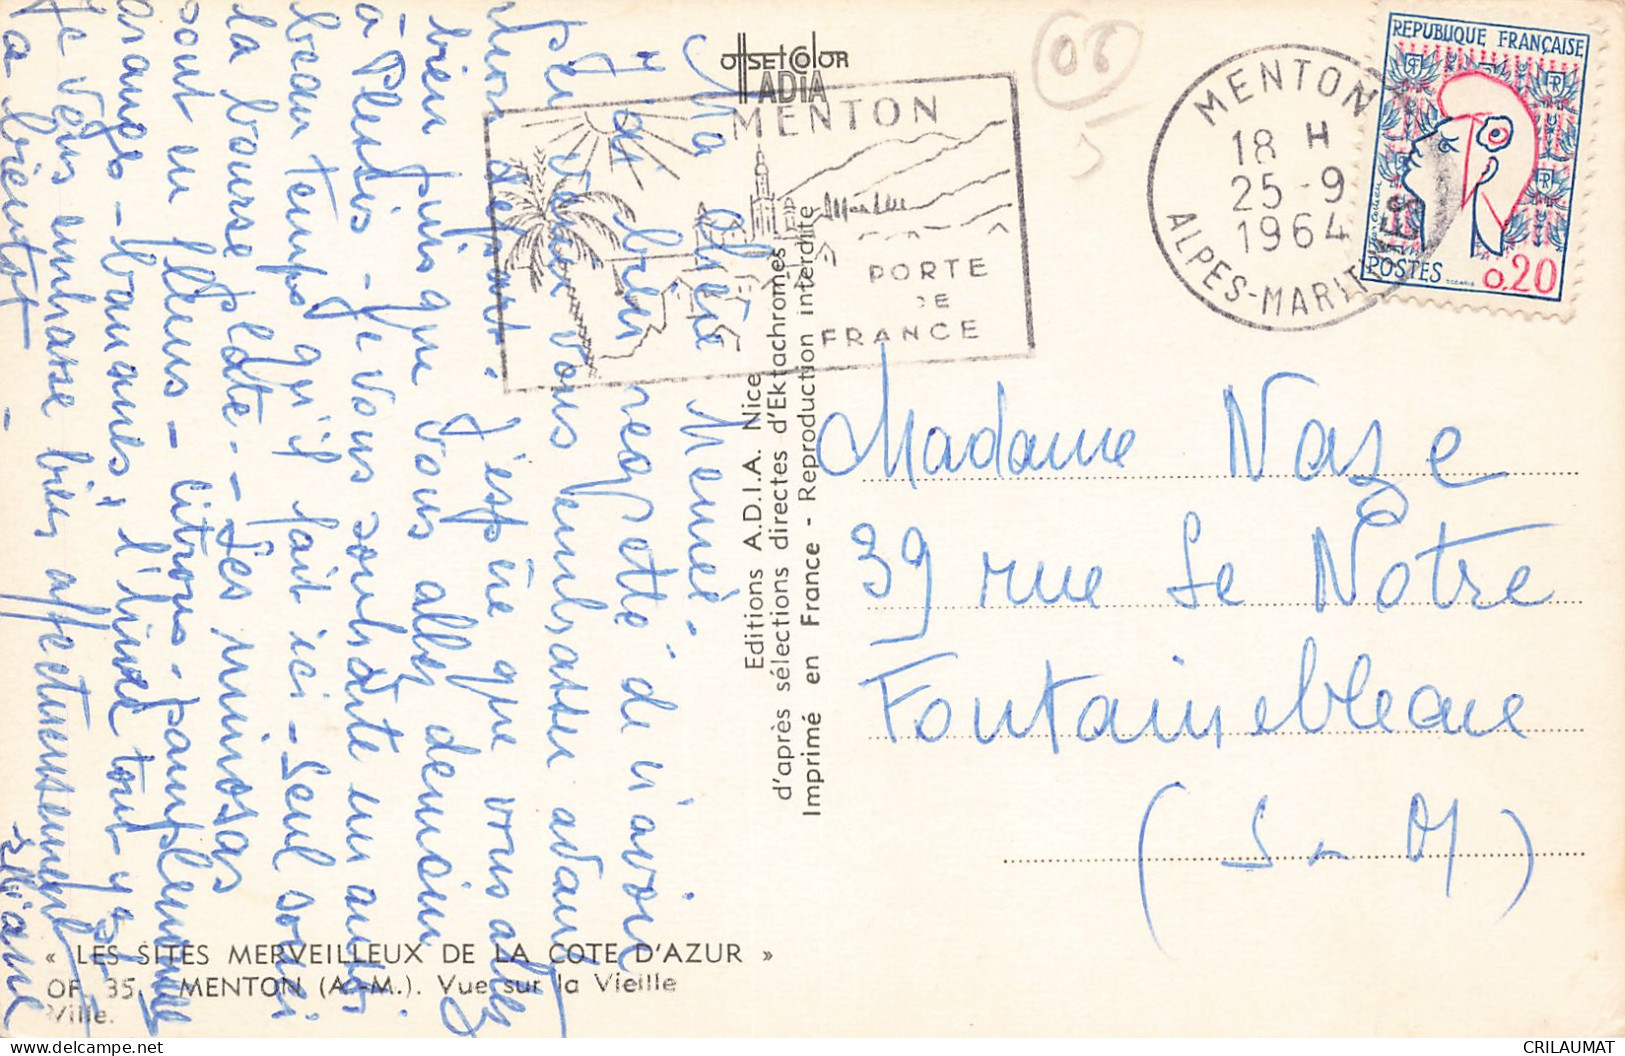 Ma chère Mémé.
J'ai bien regretté de n'avoir
pu vous embrasser avant
mon départ. J'espère que vous allez
bien puis que vous allez demain
à Plessis - Je vous souhaite un aussi
beau temps qu'il fait ici - Seul souci
la bourse plate - - Les mimosas
sont en fleurs - citrons - pamplemousse
oranges - bananes, l'hiver tout y est
Je vous embrasse bien affectueusement
a bientot -
Eliane
OffsetColor
ADIA
MENTON
PORTE
DE
FRANCE
06
MENTON
18 H
25-9
1964
ALPES-MARITIMES
REPUBLIQUE FRANÇAISE
RF
POSTES
0,20
Editions A.D.I.A. Nice
d'après sélections directes d'Ektachromes
Imprimé en France - Reproduction interdite
Madame Naze
39 rue Le Notre
Fontainebleau
(S - M)
« LES SITES MERVEILLEUX DE LA COTE D'AZUR »
OF 35. MENTON (A.-M.). Vue sur la Vieille
Ville.
CRILAUMAT